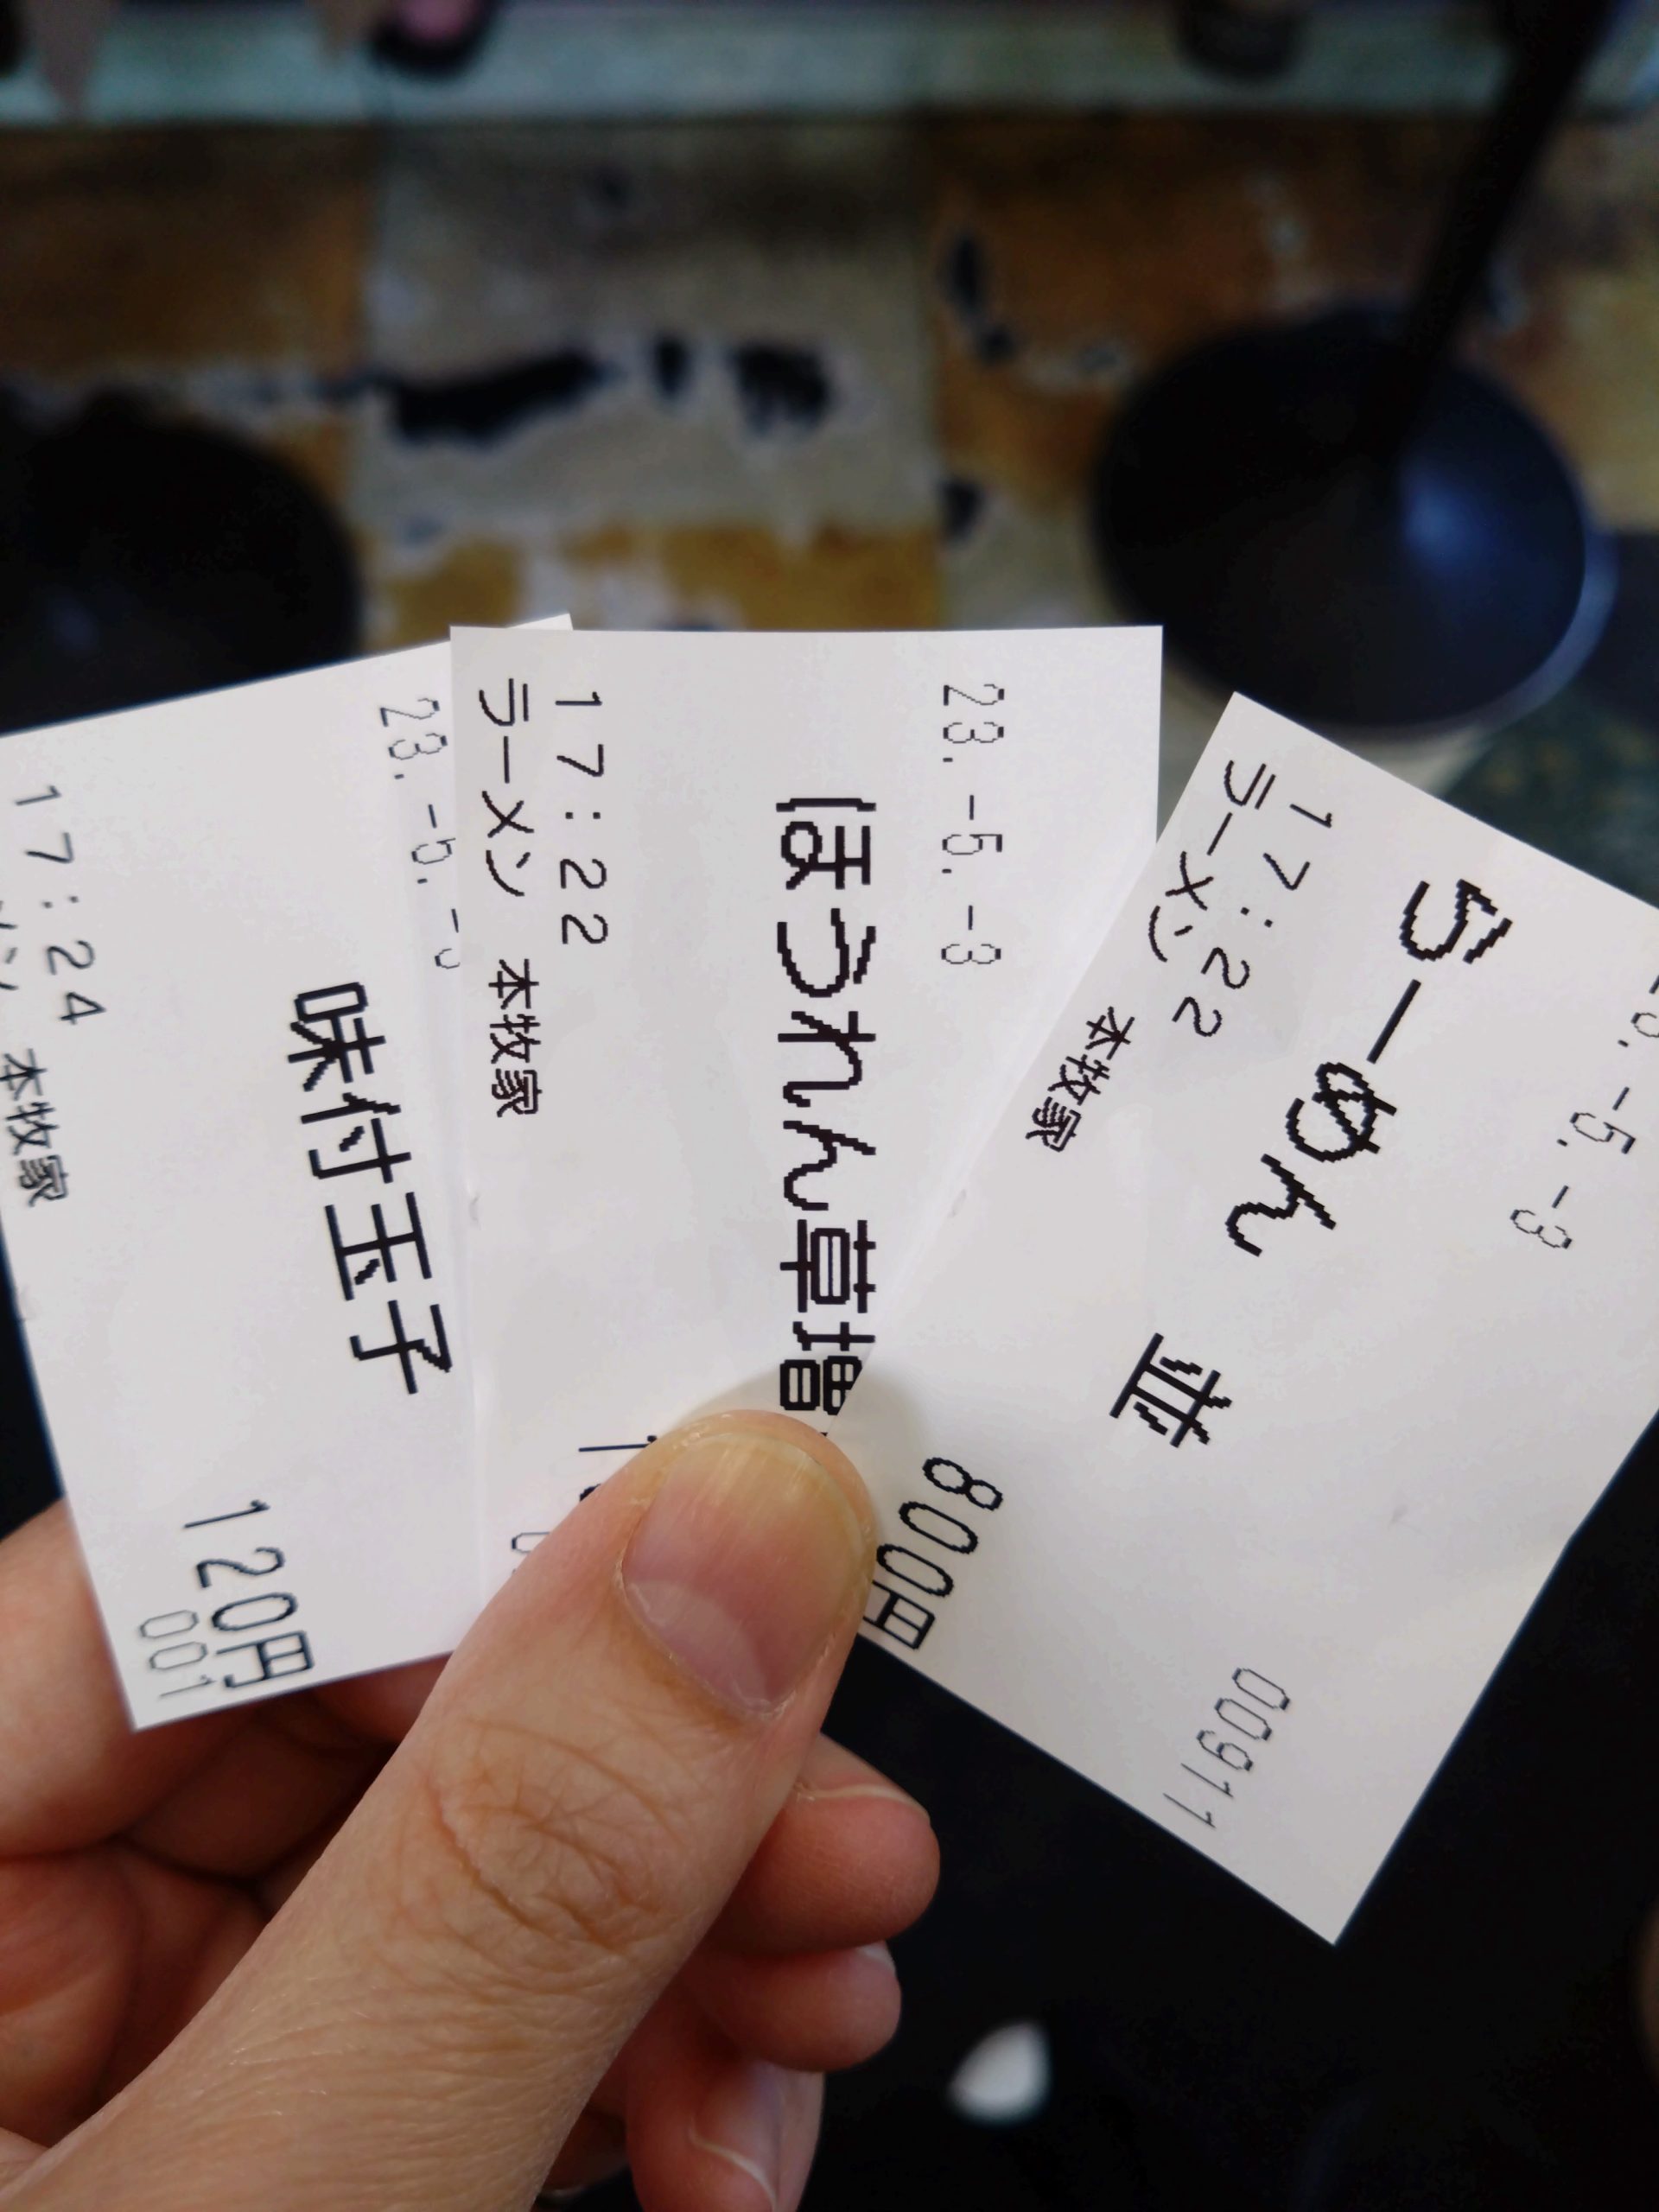 23.-5.-3
味付玉子
17:24
本牧家
120円
001
23.-5.-3
ほうれん草増
17:22
ラーメン 本牧家
-5.-3
らーめん 並
17:22
ラーメン 本牧家
800円
00911